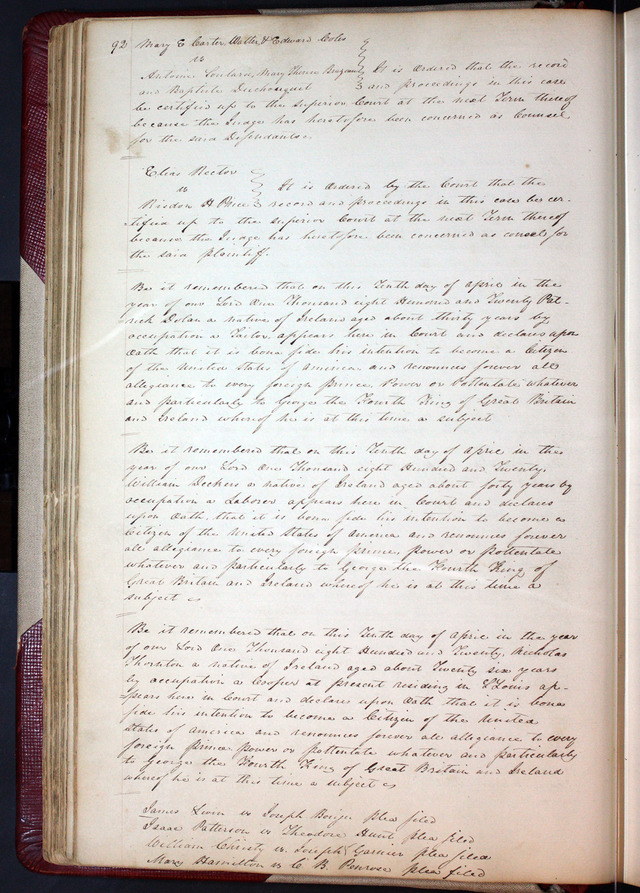 92 Mary E Carter, Walter & Edward Coles
vs
Antoine Soulard, Mary Therese It is ordered that the record
and Baptiste Duchouquet and proceedings in this case
be certified up to the Superior Court at the next Term thereof
because the Judge has heretofore been concerned as Counsel
for the said Defendants
Elias Rector
vs It is ordered by the Court that the
Risdon H Price record and proceedings in this case be cer-
tified up to the Superior Court at the next Term thereof
because the Judge has heretofore been concerned as counsel for
the said plaintiff.
Be it remembered that on this Tenth day of April in the
year of our Lord One Thousand eight Hundred and Twenty Pat-
rick Dolan a native of Ireland aged about thirty years by
occupation a Tailor, appears here in Court and declares upon
Oath that it is bona fide his intention to become a Citizen
of the United States of America and renounces forever all
allegiance to every foreign Prince, Power or Pottentate whatever
and particularly to George the Fourth King of Great Britain
and Ireland whereof he is at this time a subject
Be it remembered that on this Tenth day of April in the
year of our Lord One Thousand eight Hundred and Twenty,
William Deckers a native of Ireland aged about forty years by
occupation a Laborer appears here in Court and declares
upon Oath, that it is bona fide his intention to become a
Citizen of the United States of America and renounces forever
all allegiance to every foreign prince, power or pottentate
whatever and particularly to George the Fourth King of
Great Britain and Ireland whereof he is at this time a
subject
Be it remembered that on this Tenth day of April in the year
of our Lord One Thousand eight Hundred and Twenty, Nicholas
Thornton a native of Ireland aged about Twenty six years
by occupation a Cooper at present residing in St Louis ap-
pears here in Court and declares upon Oath that it is bona
fide his intention to become a Citizen of the United
states of America and renounces forever all allegiance to every
foreign prince power or pottentate whatever and particularly
to George the Fourth King of Great Britain and Ireland
whereof he is at this time a subject
James vs Joseph plea filed
Isaac Patterson vs Theodore Hunt plea filed
William Christy vs Joseph Garnier plea filed
Mary Hamilton vs C B Penrose plea filed